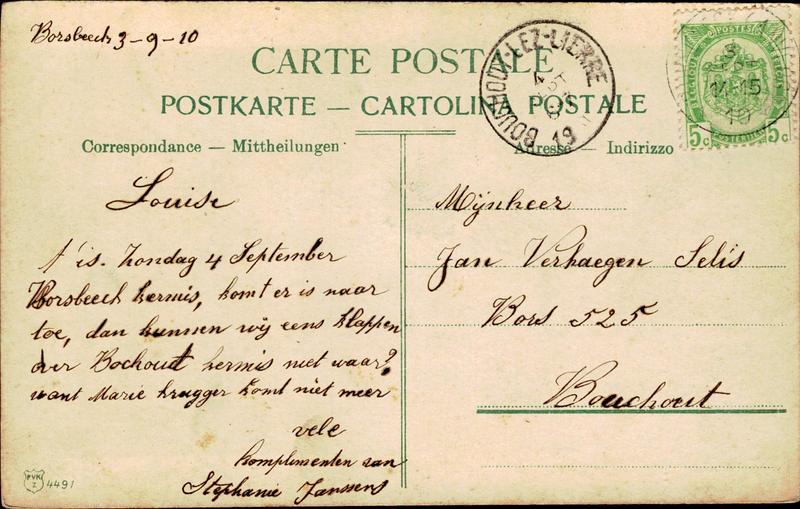 Borsbeeck 3-9-10
CARTE POSTALE
POSTKARTE — CARTOLINA POSTALE
Correspondance — Mittheilungen
Adresse — Indirizzo
BOUCHOUT-LEZ-LIERRE
4
19
POSTES
14-15
10
5c 5c
Louise
t'is. Zondag 4 September
Borsbeeck kermis, komt er is naar
toe, dan kunnen wij eens klappen
over Bochout kermis niet waar?
want Marie krugger komt niet meer
vele
komplimenten van
Stephanie Janssens
Mijnheer
Jan Verhaegen Selis
Bors 525
Bouchout
PVK
Z
4491